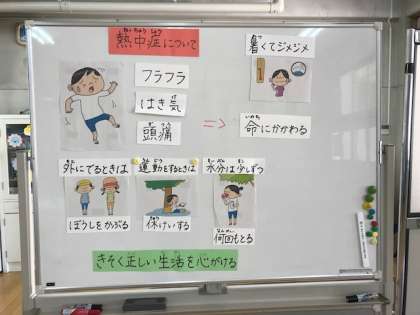 熱中症について
暑くてジメジメ
フラフラ
はき気
頭痛
⇒
命にかかわる
外にでるときは
運動をするときは
水分は少しずつ
ぼうしをかぶる
休けいする
何回もとる
きそく正しい生活を心がける